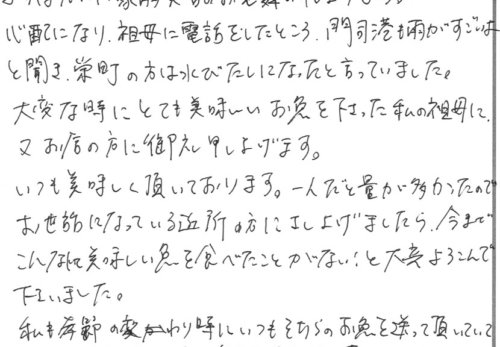 心配になり、祖母に電話をしたところ、門司港も雨がすごいよ
と聞き、栄町の方は水びたしになったと言っていました。
大変な時にとても美味しいお魚を下さった私の祖母に、
又お店の方に御礼申し上げます。
いつも美味しく頂いております。一人だと量が多かったので
お世話になっている近所の方にさし上げましたら、今まで
こんなに美味しい魚を食べたことがない!と大変よろこんで
下さいました。
私も季節の変わり時にいつもそちらのお魚を送って頂いていて